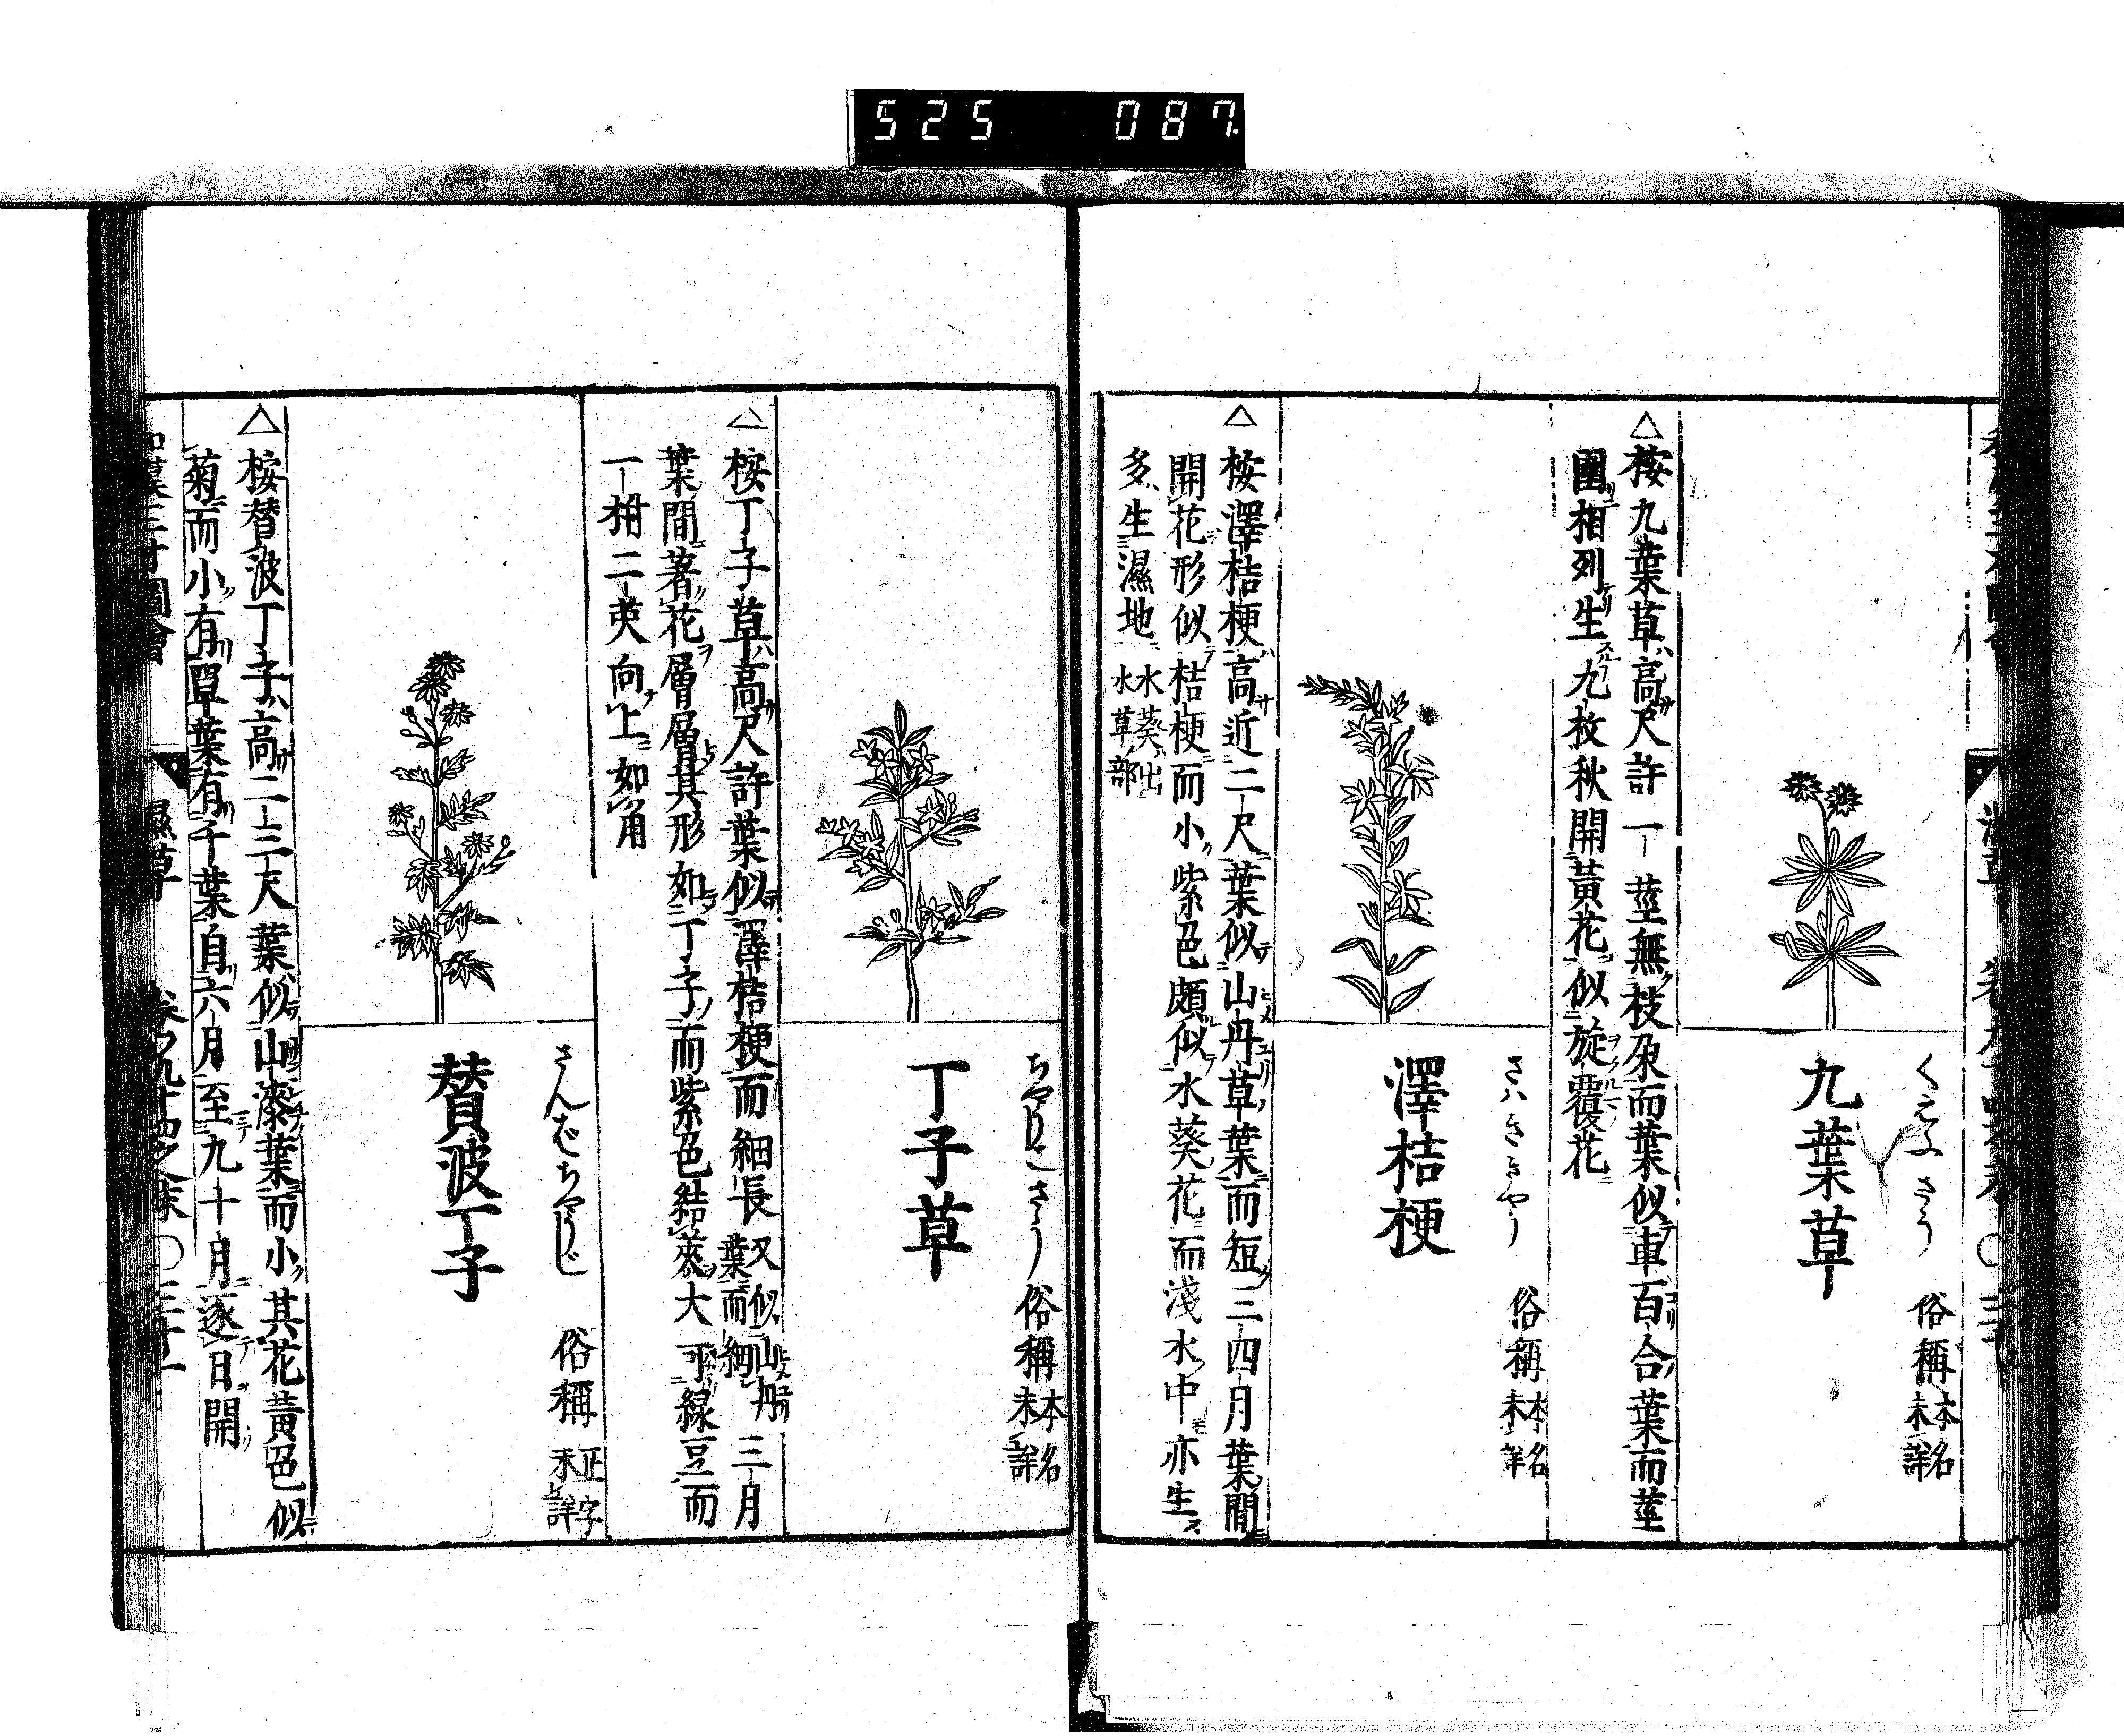 525 087
くえふさう
俗稱 本名未詳
九葉草
△按九葉草ハ高サ尺許一莖無枝朶而葉似車百合葉而莖
圍相列生九枚秋開黃花似旋覆花
さハききやう
俗稱 本名未詳
澤桔梗
△按澤桔梗ハ高サ近二尺葉似山丹草葉而短三四月葉間
開花形似桔梗而小紫色頗似水葵花而淺水中亦生
多生濕地 水葵ハ出水草部
俗稱 本名未詳
丁子草
△按丁子草ハ高尺許葉似澤桔梗而細長 又似山丹葉而細 三月
葉間著花層層其形如丁子而紫色結莢大可綠豆而
一柎二莢向上如角
さんばちやうじ
俗稱 正字未詳
賛波丁子
△按賛波丁子ハ高サ二三尺葉似山漆葉而小其花黃色似
菊而小有單葉有千葉自六月至九十月逐日開
和漢三才圖會 濕草 卷之九十四之末 〇三十一